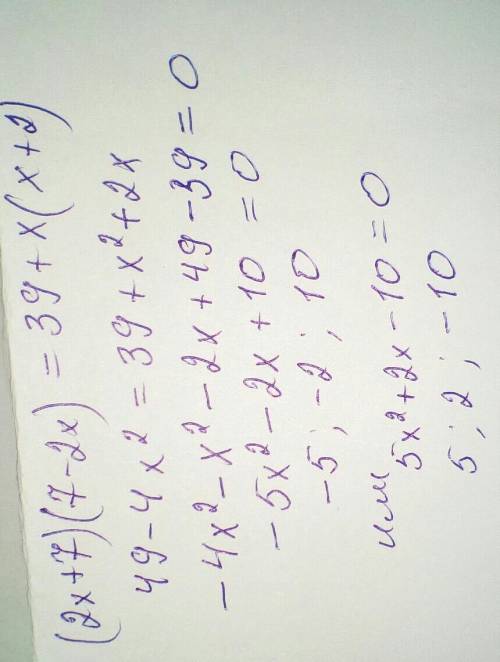 (2x+7)(7-2x) = 39+x(x+2)
49-4x² = 39+x²+2x
-4x²-x²-2x+49-39=0
-5x²-2x+10=0
-5; -2; 10
или
5x²+2x-10=0
5; 2; -10